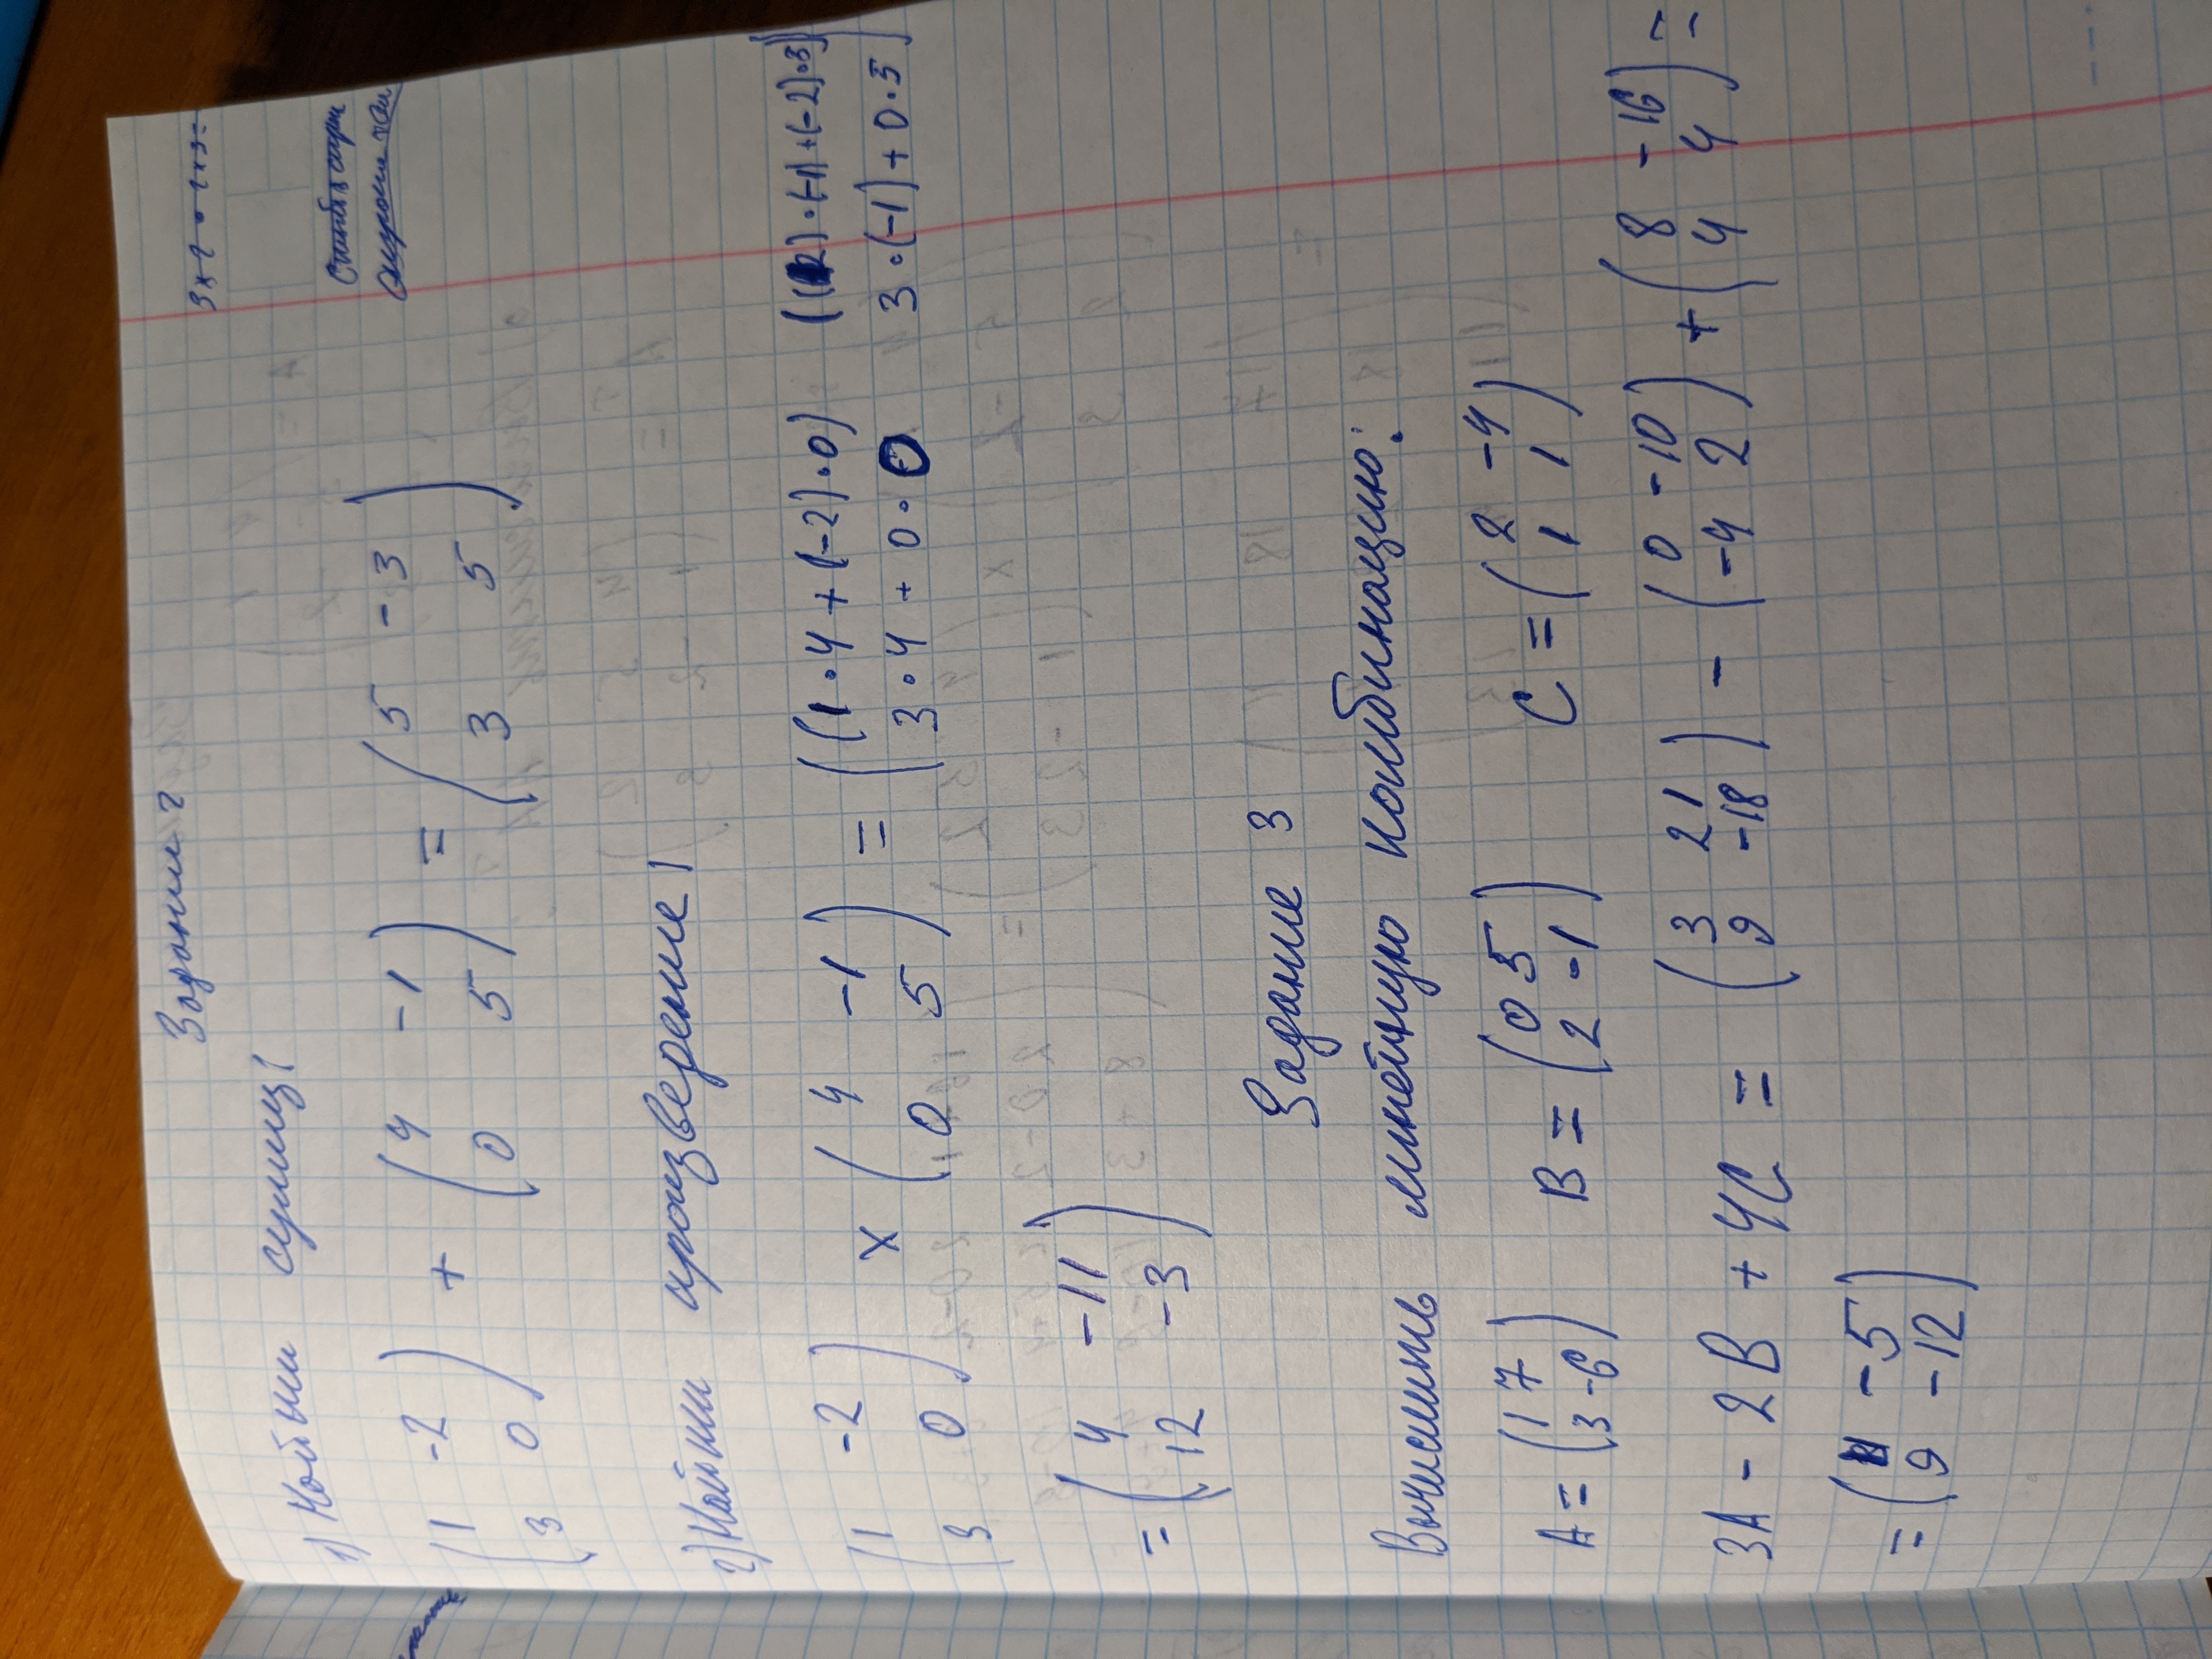 Задание 2
3×2 • 2×3=
1) Найти сумму:
(1 -2
3 0) + (4 -1
0 5) = (5 -3
3 5)
2) Найти произведение:
(1 -2
3 0) × (4 -1
0 5) = ((1·4+(-2)·0) ·(-1)+(-2)·5)
3·4 + 0·0 3·(-1)+0·5)
= (4 -11
12 -3)
Задание 3
Вычислить линейную комбинацию:
A = (1 7
3 -6) B = (0 5
2 -1) C = (2 -4
1 1)
3A - 2B + 4C = (3 21
9 -18) - (0 -10
-4 2) + (8 -16
4 4) =
= (11 -5
9 -12)